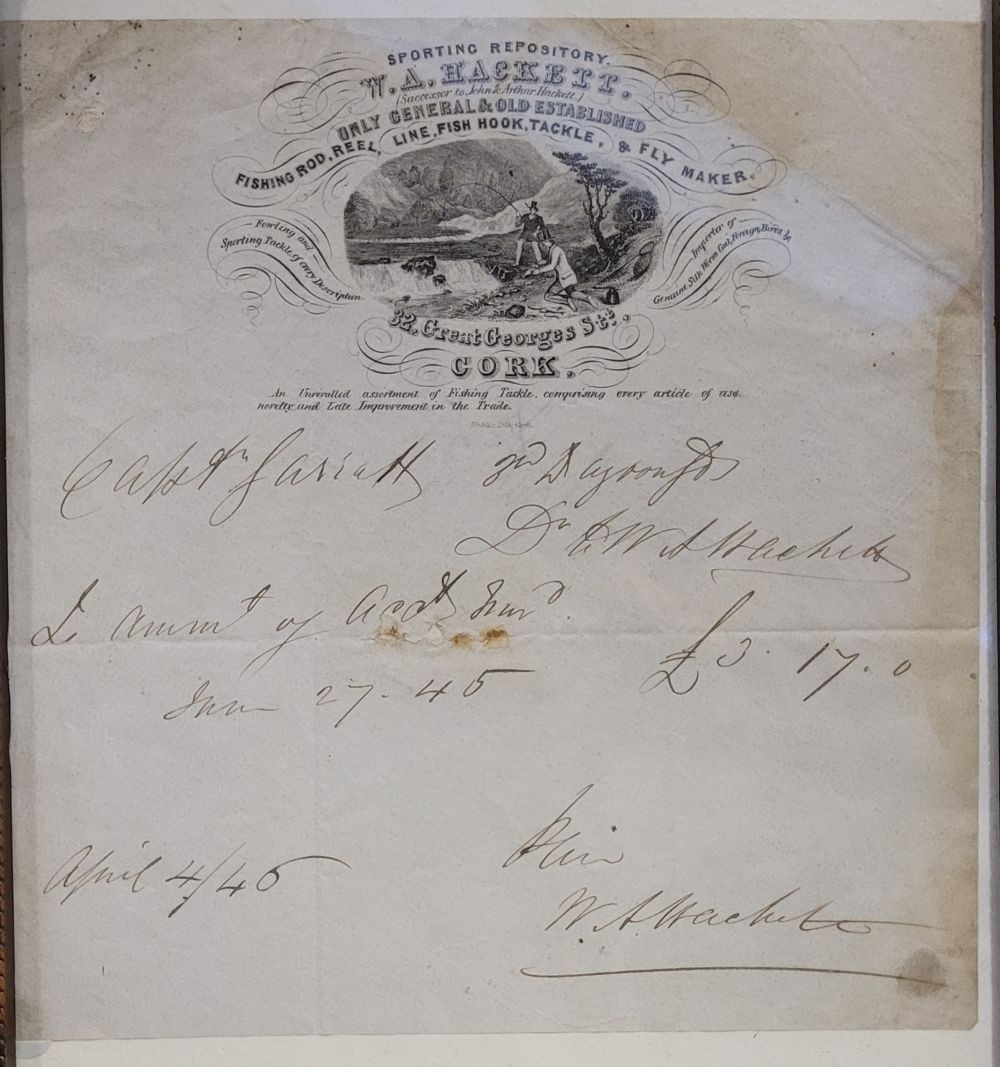 SPORTING REPOSITORY.
W. A. HACKETT.
(Successor to John & Arthur Hackett)
ONLY GENERAL & OLD ESTABLISHED
FISHING ROD, REEL, LINE, FISH HOOK, TACKLE, & FLY MAKER.
Fowling and
Sporting Tackle of every Description
Importer of
Genuine Silk Worm Gut, Foreign Birds &c
32, Great Georges Stt.,
CORK.
An Unrivalled assortment of Fishing Tackle, comprising every article of use,
novelty and Late Improvement in the Trade.
Captn Garratt Dragoon Gds
Dr to W A Hackett
To Ammt of Acct furd.
27. 45 £3. 17. 0
April 4/46
W. A. Hackett